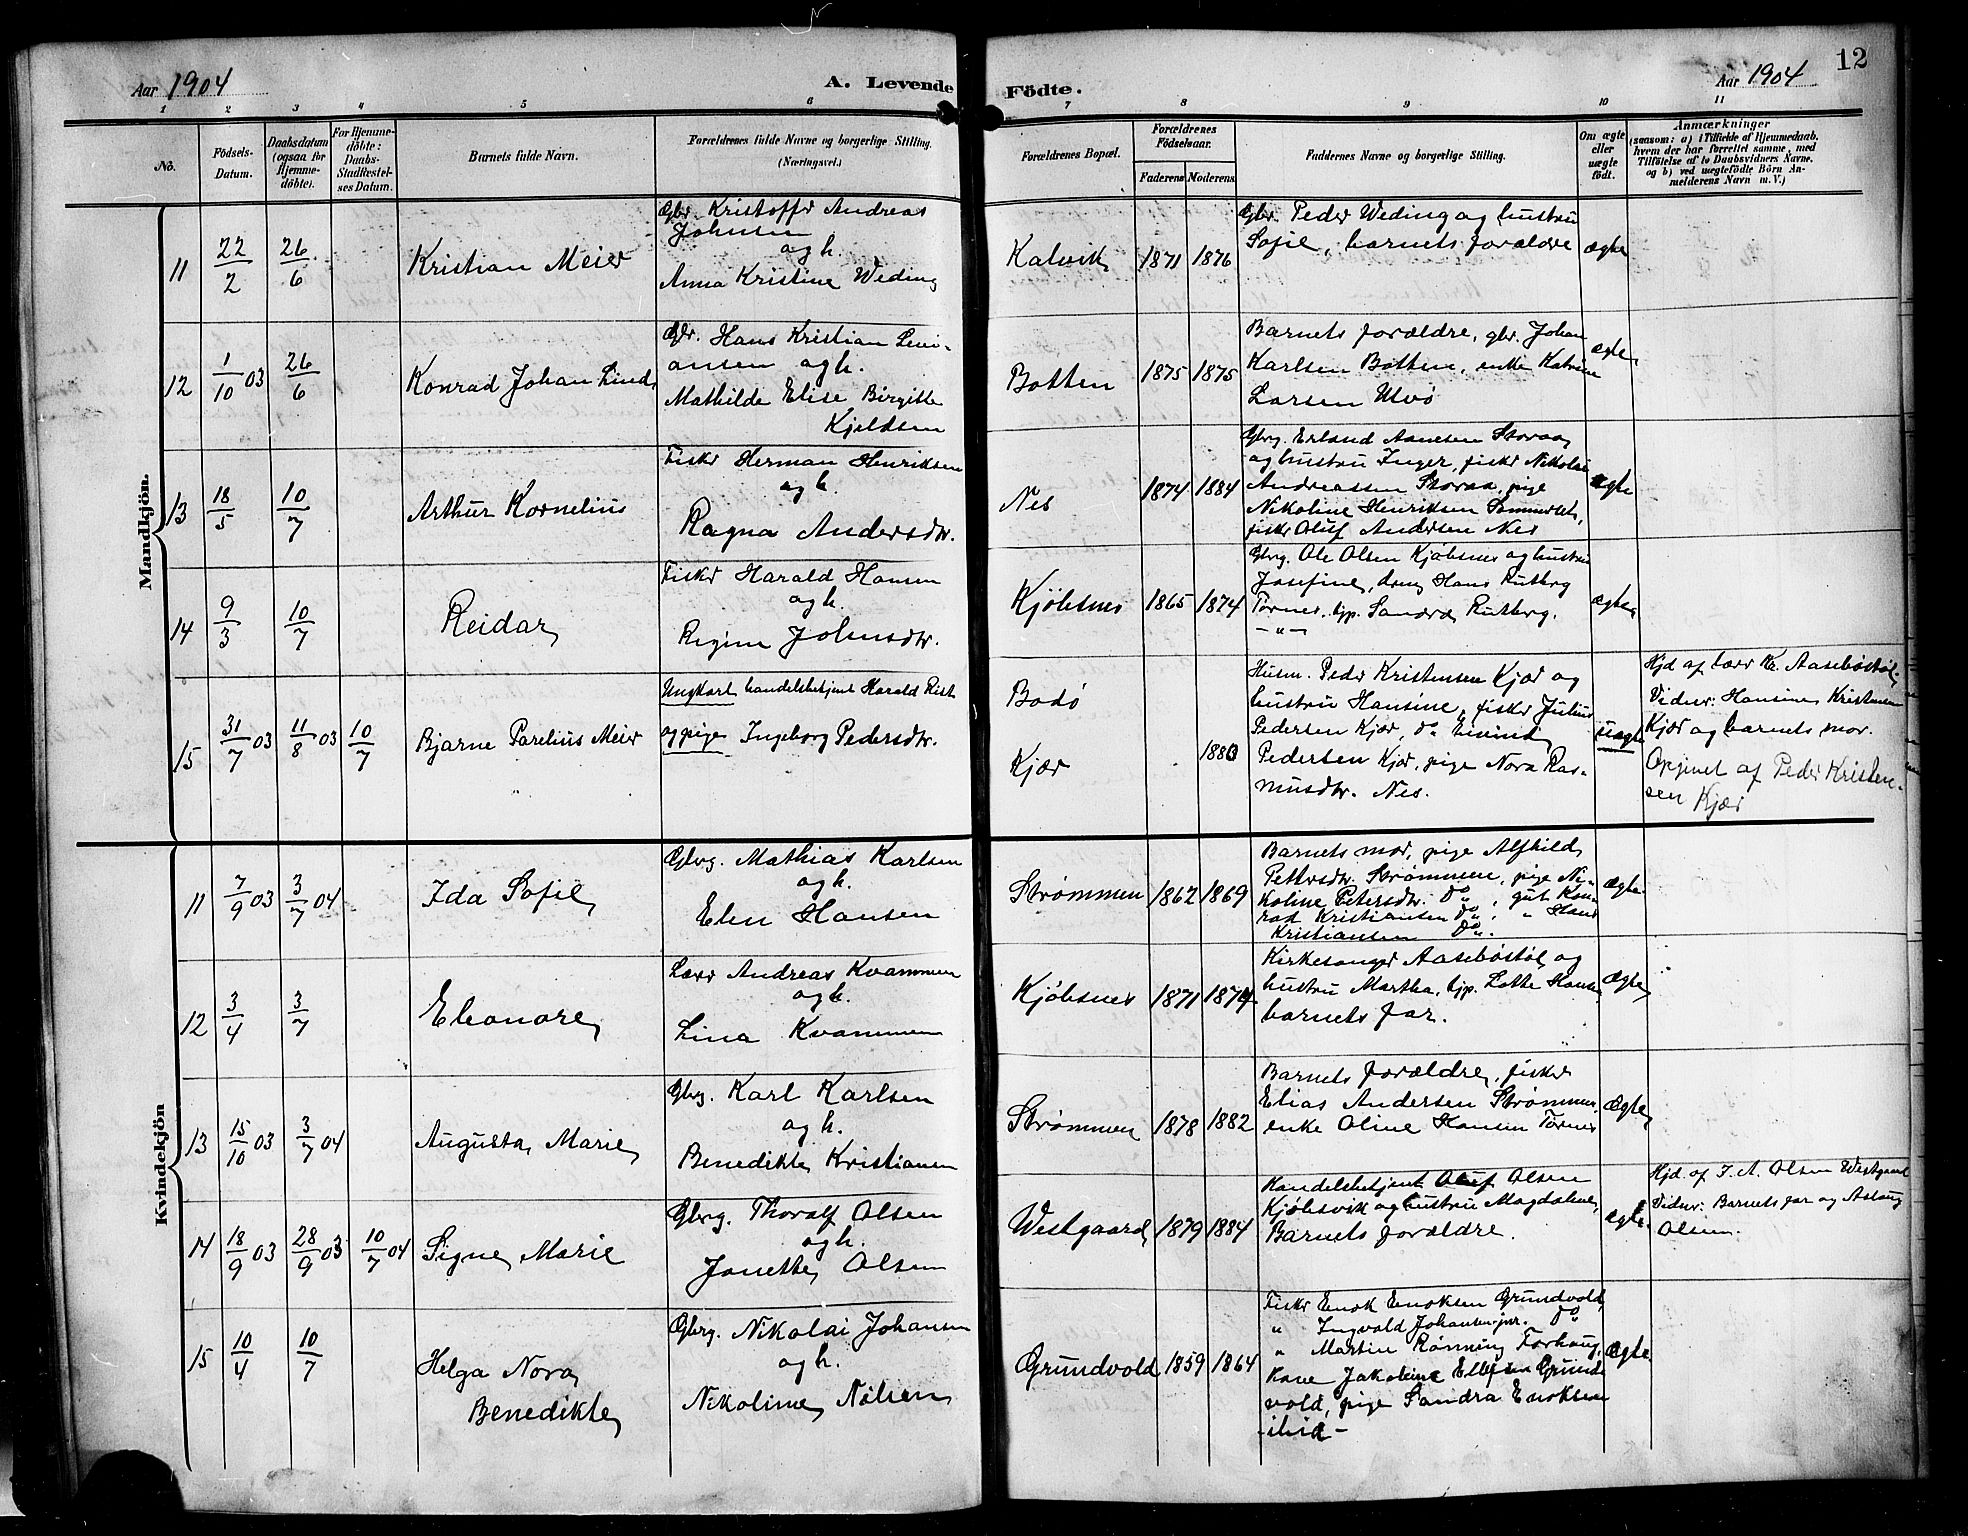 Aar 1904
A. Levende
Födte.
Aar 1904
12
1 2 3 4 5 6 7 8 9 10 11
No.
Födsels-
Datum.
Daabsdatum
(ogsaa for
Hjemme-
döbte).
For Hjemme-
döbte:
Daabs-
Stadfæstel-
ses Datum.
Barnets fulde Navn.
Forældrenes fulde Navne og borgerlige Stilling.
(Næringsvei.)
Forældrenes Bopæl.
Forældrenes
Födselsaar.
Faderens Moderens
Faddernes Navne og borgerlige Stilling.
Om ægte
eller
uægte
født.
Anmærkninger
(saasom: a) i Tilfælde af Hjemmedaab,
hvem der har forrettet samme, med
Tilföielse af to Daabsvidners Navne.
og b) ved uægtefödte Börn An-
melderens Navn m. V.)
Mandkjön.
11
22/2
26/6
Kristian Meier
Gbr. Kristoffer Andreas
Johnsen
og h.
Anna Kristine Weding
Kalvik
1871 1876
Gbr. Peder Weding og hustru
Sofie, barnets forældre
ægte
12
1/10 03
26/6
Konrad Johan Lind
Gbr. Hans Kristian Levi-
ansen og h.
Mathilde Elise Birgitte
Kjeldsen
Botten
1875 1875
Barnets forældre, gbr. Johan
Karlsen Botten, enke Katrine
Larsen Utvø
ægte
13
18/5
10/7
Arthur Kornelius
Fisker Herman Henriksen
og h.
Ragna Andersdtr.
Nes
1874 1884
Gbrg. Erland Aanesen Storaa
og hustru Inger, fisker Nikolai
Andreassen Storaa, pige
Nikoline Henriksen Sommerset,
fisker Oluf Andersen Nes
ægte
14
9/3
10/7
Reidar
Fisker Harald Hansen
og h.
Regine Johnsdtr.
Kjöbsnes
1865 1874
Gbrg. Ole Olsen Kjöbsnes og hustru
Josefine, dreng Hans Rutberg
Tornes. tjp. Sandra Rutberg.
— " —
ægte
15
31/7 03
11/8 03
10/7
Bjarne Parelius Meier
Ungkarl handelsbetjent Harald Rist
og pige Ingeborg Pedersdtr.
Bodö
Kjær
1883
Husm. Peder Kristensen Kjær og
hustru Hansine, fisker Julius
Pedersen Kjær, do Eivind
Pedersen Kjær, pige Nora Ras-
musdtr. Nes.
uægte
Hjd af lærer Kr. Aasebøstøl.
Vidner: Hansine Kristensen
Kjær og barnets mor.
Opgivet af Peder Kristen-
sen Kjær
Kvindekjön
11
7/9 03
3/7 04
Ida Sofie
Gbrg. Mathias Karlsen
og h.
Elen Hansen
Strømmen
1862 1869
Barnets mor, pige Alfhild
Pettersdtr. Strømmen, pige Ni-
koline Petersdtr. do, gut Kon-
rad Kristiansen do, " Hans
Kristiansen do.
ægte
12
3/4
3/7
Eleonore
Lærer Andreas Kvammen
og h.
Lina Kvammen
Kjöbsnes
1871 1874
Kirkesanger Aasebøstøl og
hustru Martha, tjp. Lotte Hansen
barnets far.
ægte
13
15/10 03
3/7 04
Augusta Marie
Gbrg. Karl Karlsen
og h.
Benedikte Kristiansen
Strømmen
1878 1882
Barnets forældre, fisker
Elias Andersen Strømmen,
enke Oline Hansen Tornes
ægte
14
18/9 03
28/9 03
10/7 04
Signe Marie
Gbrg. Thoralf Olsen
og h.
Jonette Olsen
Westgaard
1879 1884
Handelsbetjent Oluf Olsen
Kjöbsvik og hustru Magdalene,
Barnets forældre.
ægte
Hjd. af J. A. Olsen Westgaard
Vidner: Barnets far og Aslaug
Olsen.
15
10/4
10/7
Helga Nora
Benedikte
Gbrg. Nikolai Johansen
og h.
Nikoline Nilsen
Grundvold
1859 1864
Fisker Enok Enoksen Grundvold,
" Ingvald Johansen jnr. do
" Martin Rønning Forhaug,
Kone Jakobine Ellefsen Grund-
vold, pige Sandra Enoksen
- ibid -
ægte